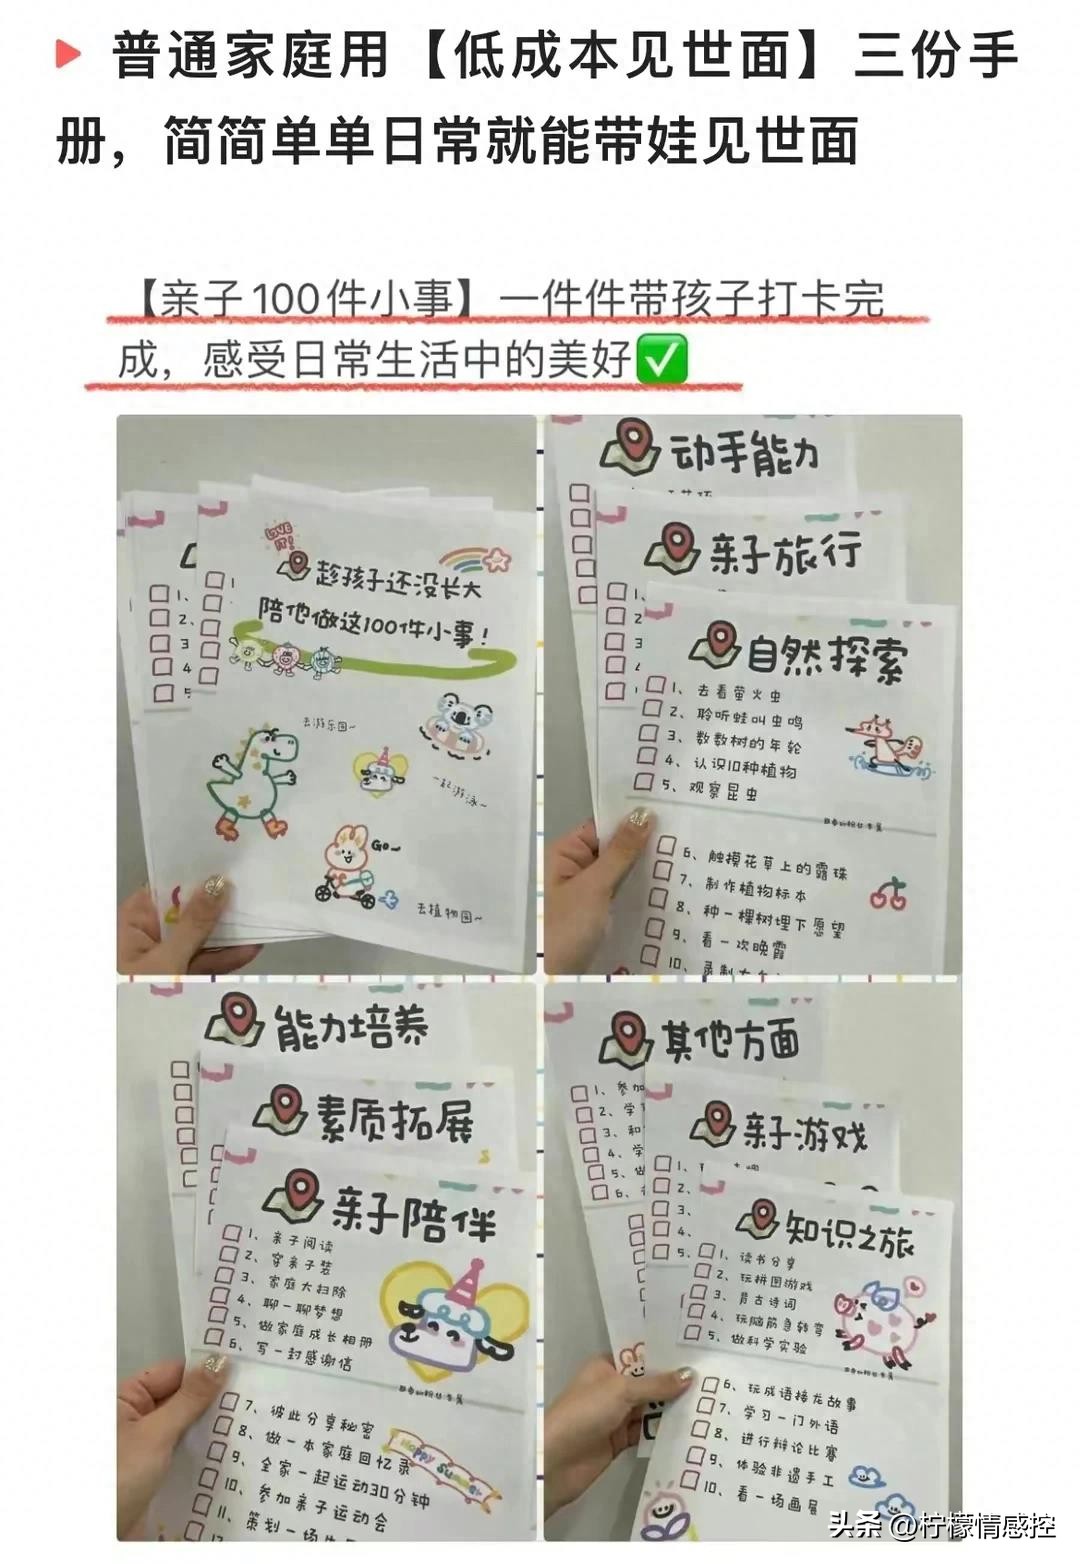 普通家庭用【低成本见世面】三份手
册，简简单单日常就能带娃见世面
【亲子100件小事】一件件带孩子打卡完
成，感受日常生活中的美好
LOVE IT!
趁孩子还没长大
陪他做这100件小事！
1、
2、
3
4
5
去游乐园~
一起游泳~
Go~
去植物园~
动手能力
亲子旅行
自然探索
1、去看萤火虫
2、聆听蛙叫虫鸣
3、数数树的年轮
4、认识10种植物
5、观察昆虫
6、触摸花草上的露珠
7、制作植物标本
8、种一棵树埋下愿望
9、看一次晚霞
10、录制大
能力培养
素质拓展
亲子陪伴
1、亲子阅读
2、穿亲子装
3、家庭大扫除
4、聊一聊梦想
5、做家庭成长相册
6、写一封感谢信
7、彼此分享秘密
8、做一本家庭回忆录
9、全家一起运动30分钟
10、参加亲子运动会
11、策划一场
Happy Summer
其他方面
1、参加
2、学
3、和
4、学
5、做
6、
亲子游戏
1、
2、
3、
4、
5、
知识之旅
1、读书分享
2、玩拼图游戏
3、背古诗词
4、玩脑筋急转弯
5、做科学实验
6、玩成语接龙故事
7、学习一门外语
8、进行辩论比赛
9、体验非遗手工
10、看一场画展
头条 @柠檬情感控